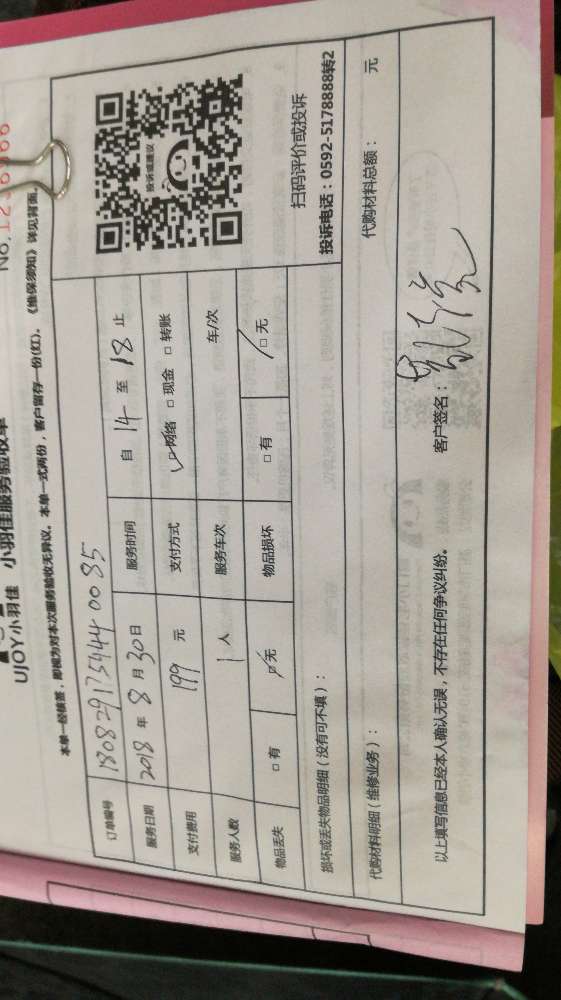 UJOY小羽佳 小羽佳服务验收单
本单一经核签，即视为对本次服务验收无异议。本单一式两份，客户留存一份(红)。《维保须知》详见背面。
订单编号 180829173444 0085
服务日期 2018 年 8 月 30 日 服务时间 自 14 至 18 止
支付费用 199 元 支付方式 □网络 □ 现金 □ 转账
服务人数 1 人 服务车次 车/次
物品丢失 □ 有 □无 物品损坏 □ 有 □ 无
投诉或建议
扫码评价或投诉
投诉电话：0592-5178888转2
损坏或丢失物品明细（没有可不填）：
代购材料明细（维修业务）： 代购材料总额： 元
以上填写信息已经本人确认无误，不存在任何争议纠纷。 客户签名：